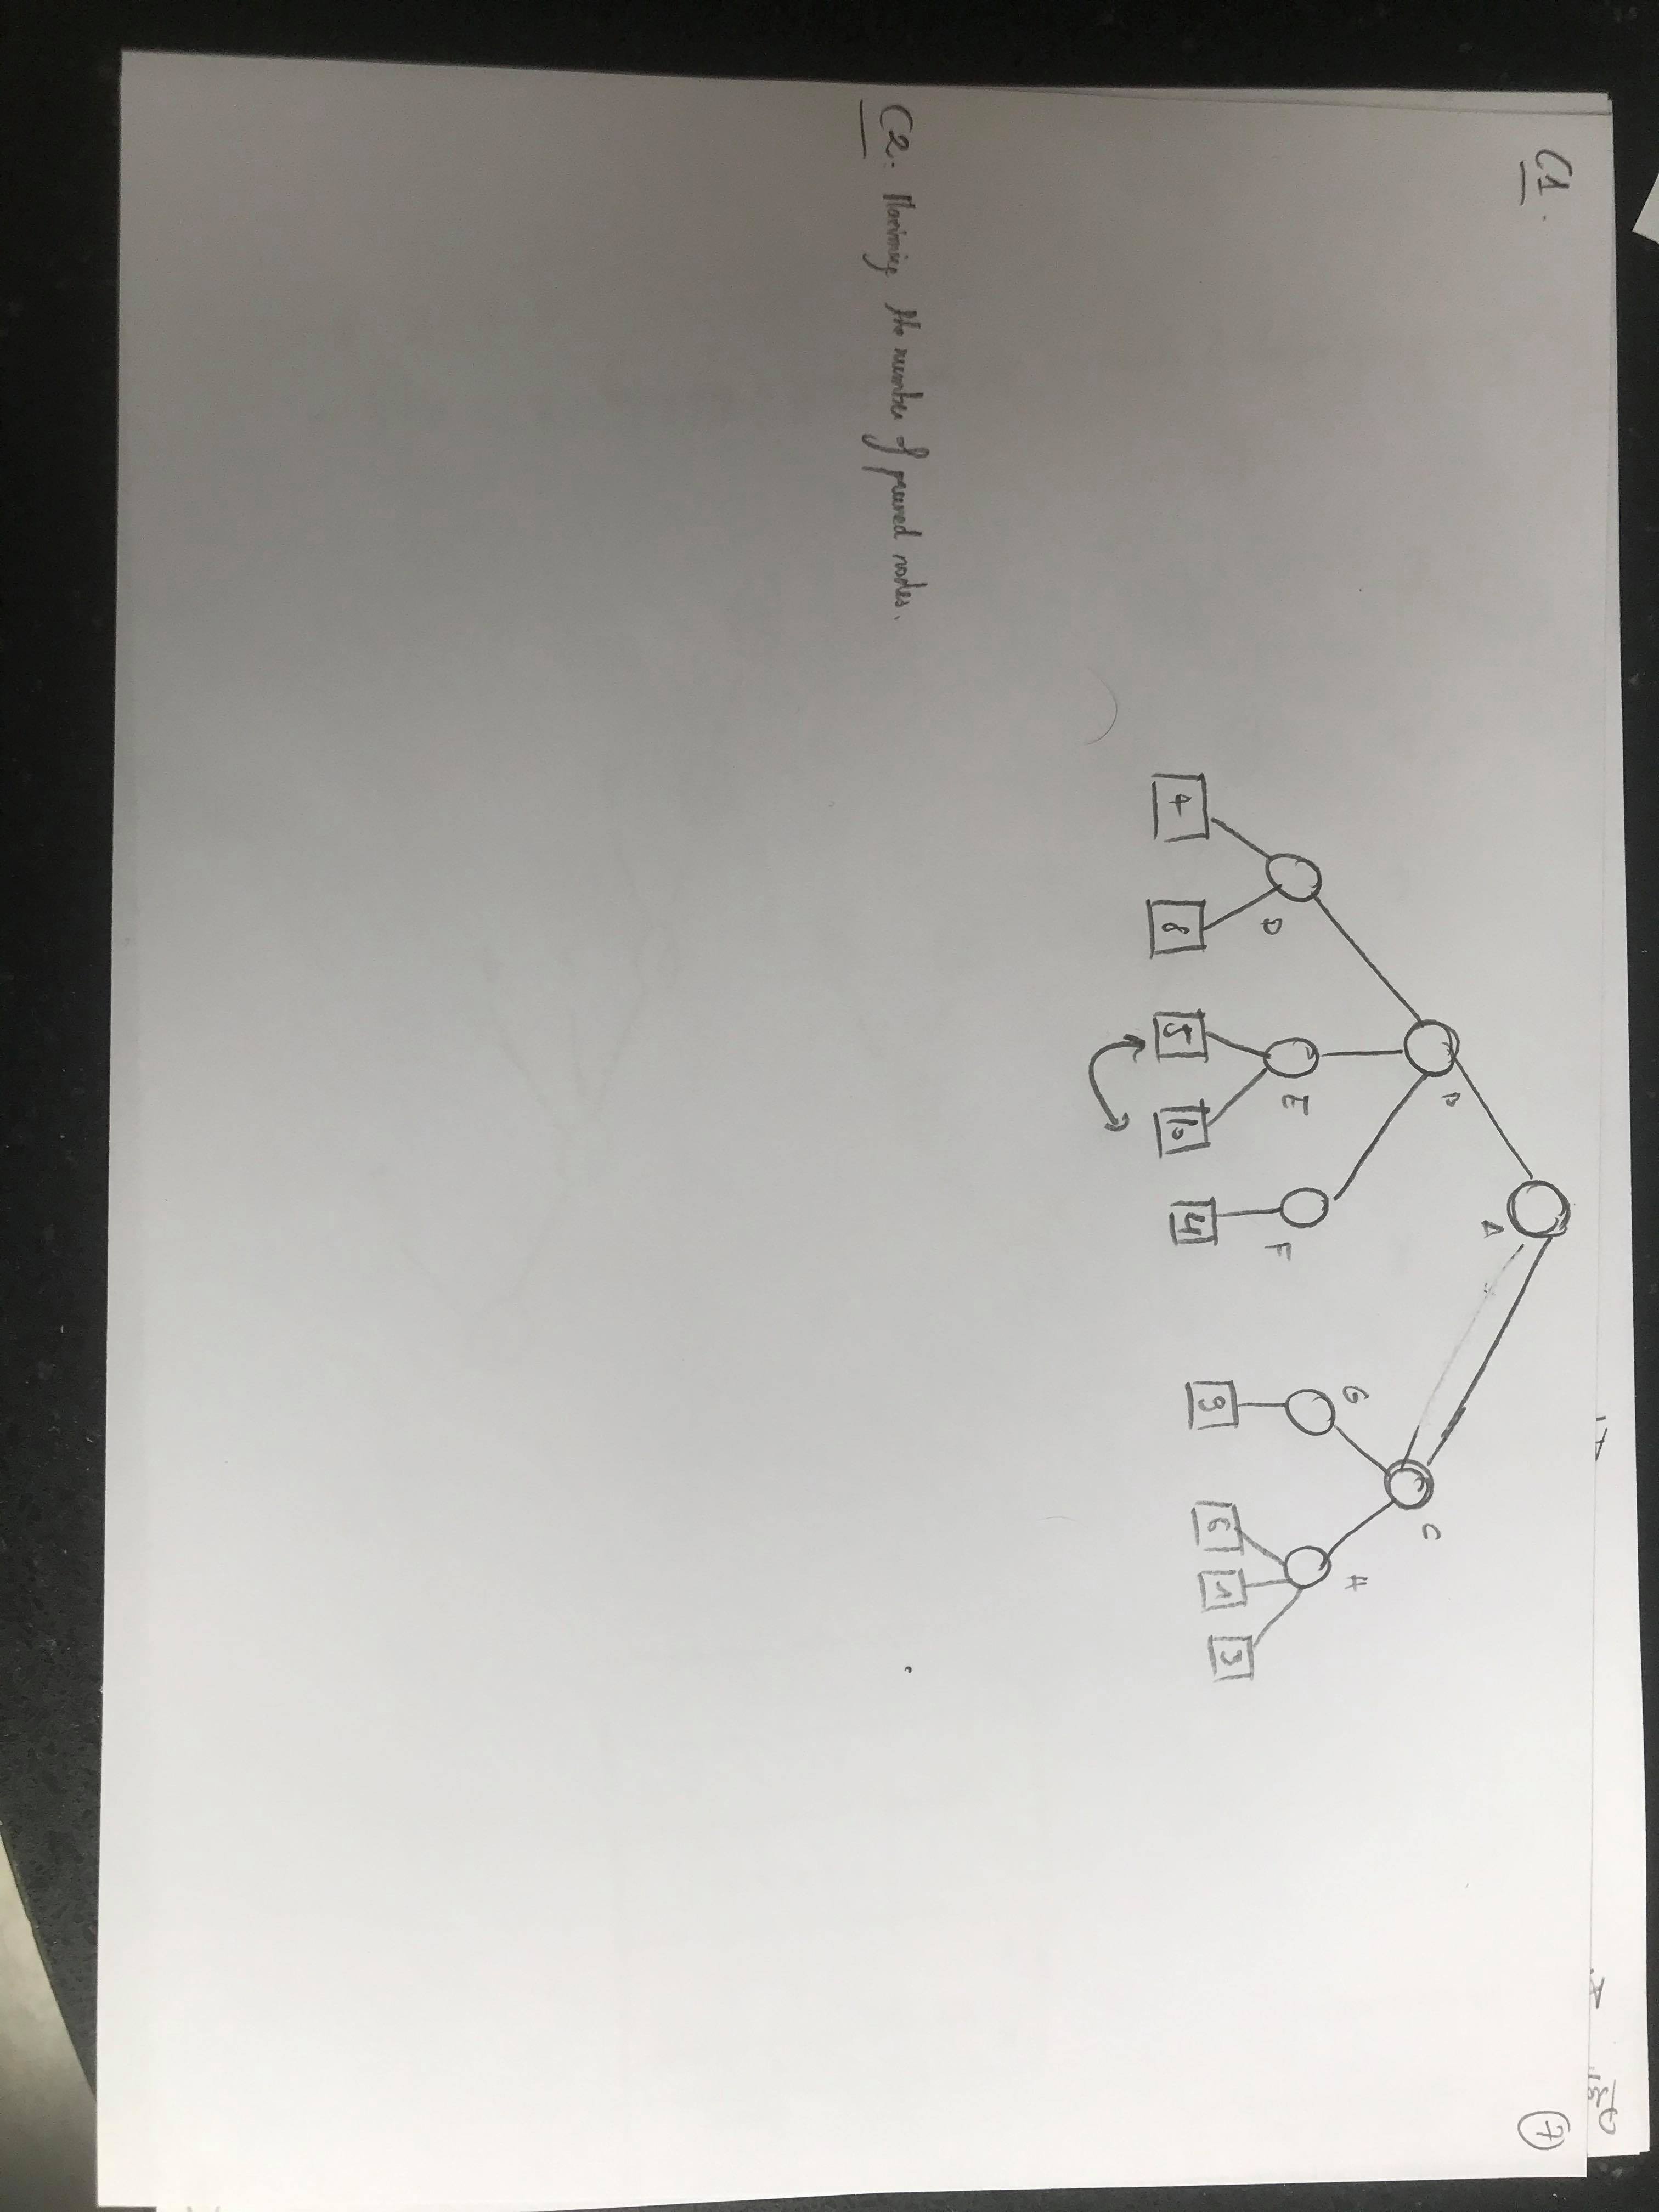 C1.
7
A
B
C
D
E
F
G
H
8
5
10
4
9
6
1
3
C2. Maximize the number of pruned nodes.